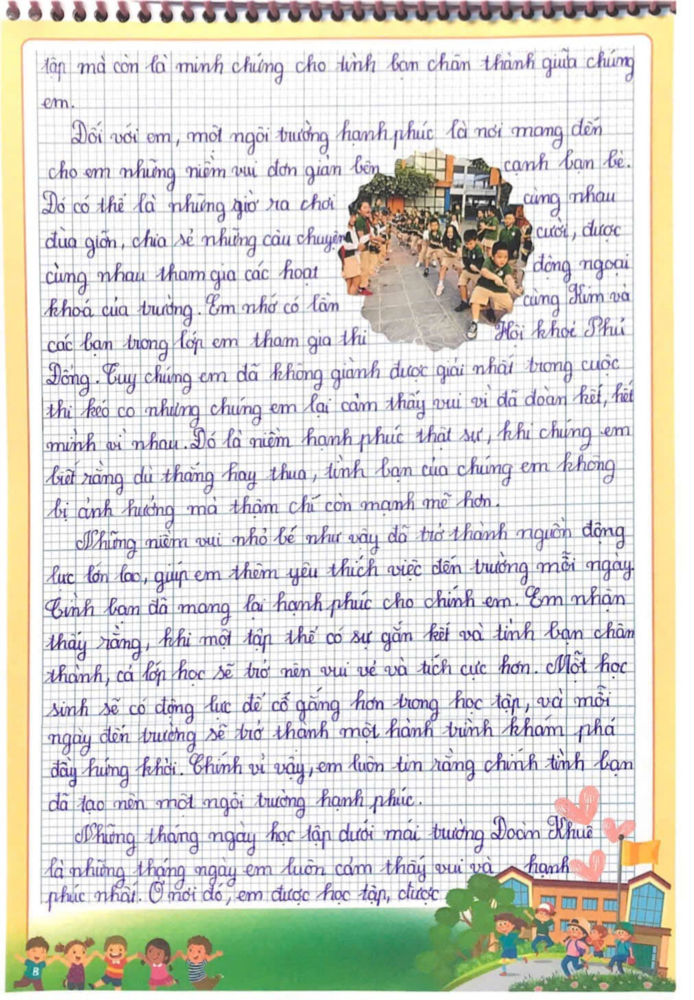 tập mà còn là minh chứng cho tình bạn chân thành giữa chúng
em.
Đối với em, một ngôi trường hạnh phúc là nơi mang đến
cho em những niềm vui đơn giản bên cạnh bạn bè.
Đó có thể là những giờ ra chơi cùng nhau
đùa giỡn, chia sẻ những câu chuyện cười, được
cùng nhau tham gia các hoạt động ngoại
khoá của trường. Em nhớ có lần cùng Kim và
các bạn trong lớp em tham gia thi Hội khoẻ Phù
Đổng. Tuy chúng em đã không giành được giải nhất trong cuộc
thi kéo co nhưng chúng em lại cảm thấy vui vì đã đoàn kết, hết
mình vì nhau. Đó là niềm hạnh phúc thật sự, khi chúng em
biết rằng dù thắng hay thua, tình bạn của chúng em không
bị ảnh hưởng mà thậm chí còn mạnh mẽ hơn.
Những niềm vui nhỏ bé như vậy đã trở thành nguồn động
lực lớn lao, giúp em thêm yêu thích việc đến trường mỗi ngày
Tình bạn đã mang lại hạnh phúc cho chính em. Em nhận
thấy rằng, khi một tập thể có sự gắn kết và tình bạn chân
thành, cả lớp học sẽ trở nên vui vẻ và tích cực hơn. Mỗi học
sinh sẽ có động lực để cố gắng hơn trong học tập, và mỗi
ngày đến trường sẽ trở thành một hành trình khám phá
đầy hứng khởi. Chính vì vậy, em luôn tin rằng chính tình bạn
đã tạo nên một ngôi trường hạnh phúc.
Những tháng ngày học tập dưới mái trường Đoàn Khuê
là những tháng ngày em luôn cảm thấy vui và hạnh
phúc nhất. Ở nơi đó, em được học tập, được
B